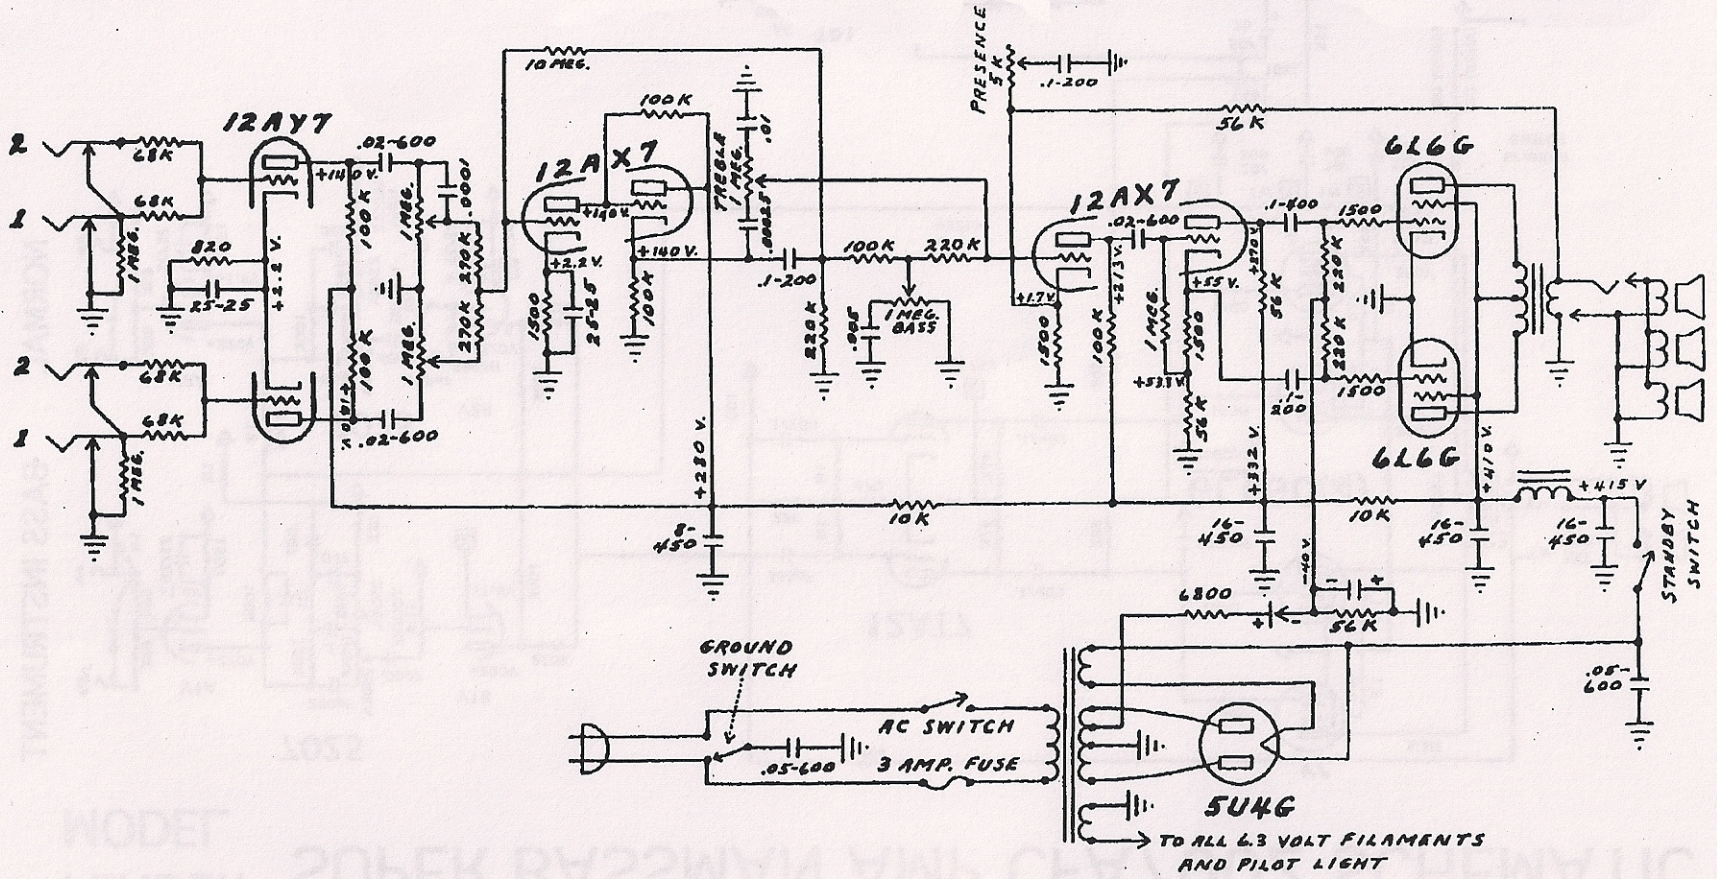 2
68K
1
68K
1 MEG.
820
25-25
12AY7
+140V.
+2.2 V.
.02-600
100K
1 MEG.
.0001
270K
2
68K
1
68K
1 MEG.
100K
+140V.
1 MEG.
270K
.02-600
10 MEG.
12AX7
100K
+140V.
+2.2V.
1500
25-25
+140V.
100K
TREBLE
1 MEG.
.01
.00025
.1-200
220K
100K
220K
.005
1 MEG.
BASS
PRESENCE
5K
.1-200
56K
12AX7
.02-600
+1.7V
1500
+213V.
100K
1 MEG.
+55V.
1500
+53.8V.
56K
+270V.
56K
.1-400
1500
220K
220K
.1-
200
1500
6L6G
6L6G
+280 V.
8-
450
10K
+332 V.
16-
450
10K
+410V.
16-
450
+415 V
16-
450
STANDBY
SWITCH
-40V.
- +
6800
+ -
56K
.05-
600
GROUND
SWITCH
AC SWITCH
.05-600
3 AMP. FUSE
5U4G
TO ALL 6.3 VOLT FILAMENTS
AND PILOT LIGHT